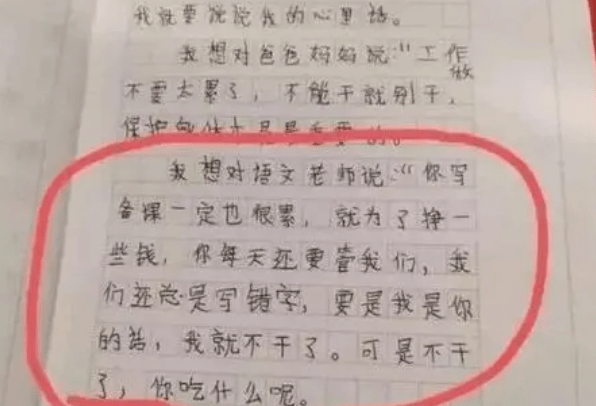 我就要说说我的心里话。
我想对爸爸妈妈说:“工作做
不要太累了,不能干就别干,
保护身体才是最重要的。
我想对语文老师说:“你写
备课一定也很累,就为了挣一
些钱,你每天还要管我们,我
们还总是写错字,要是我是你
的话,我就不干了。可是不干
了,你吃什么呢。